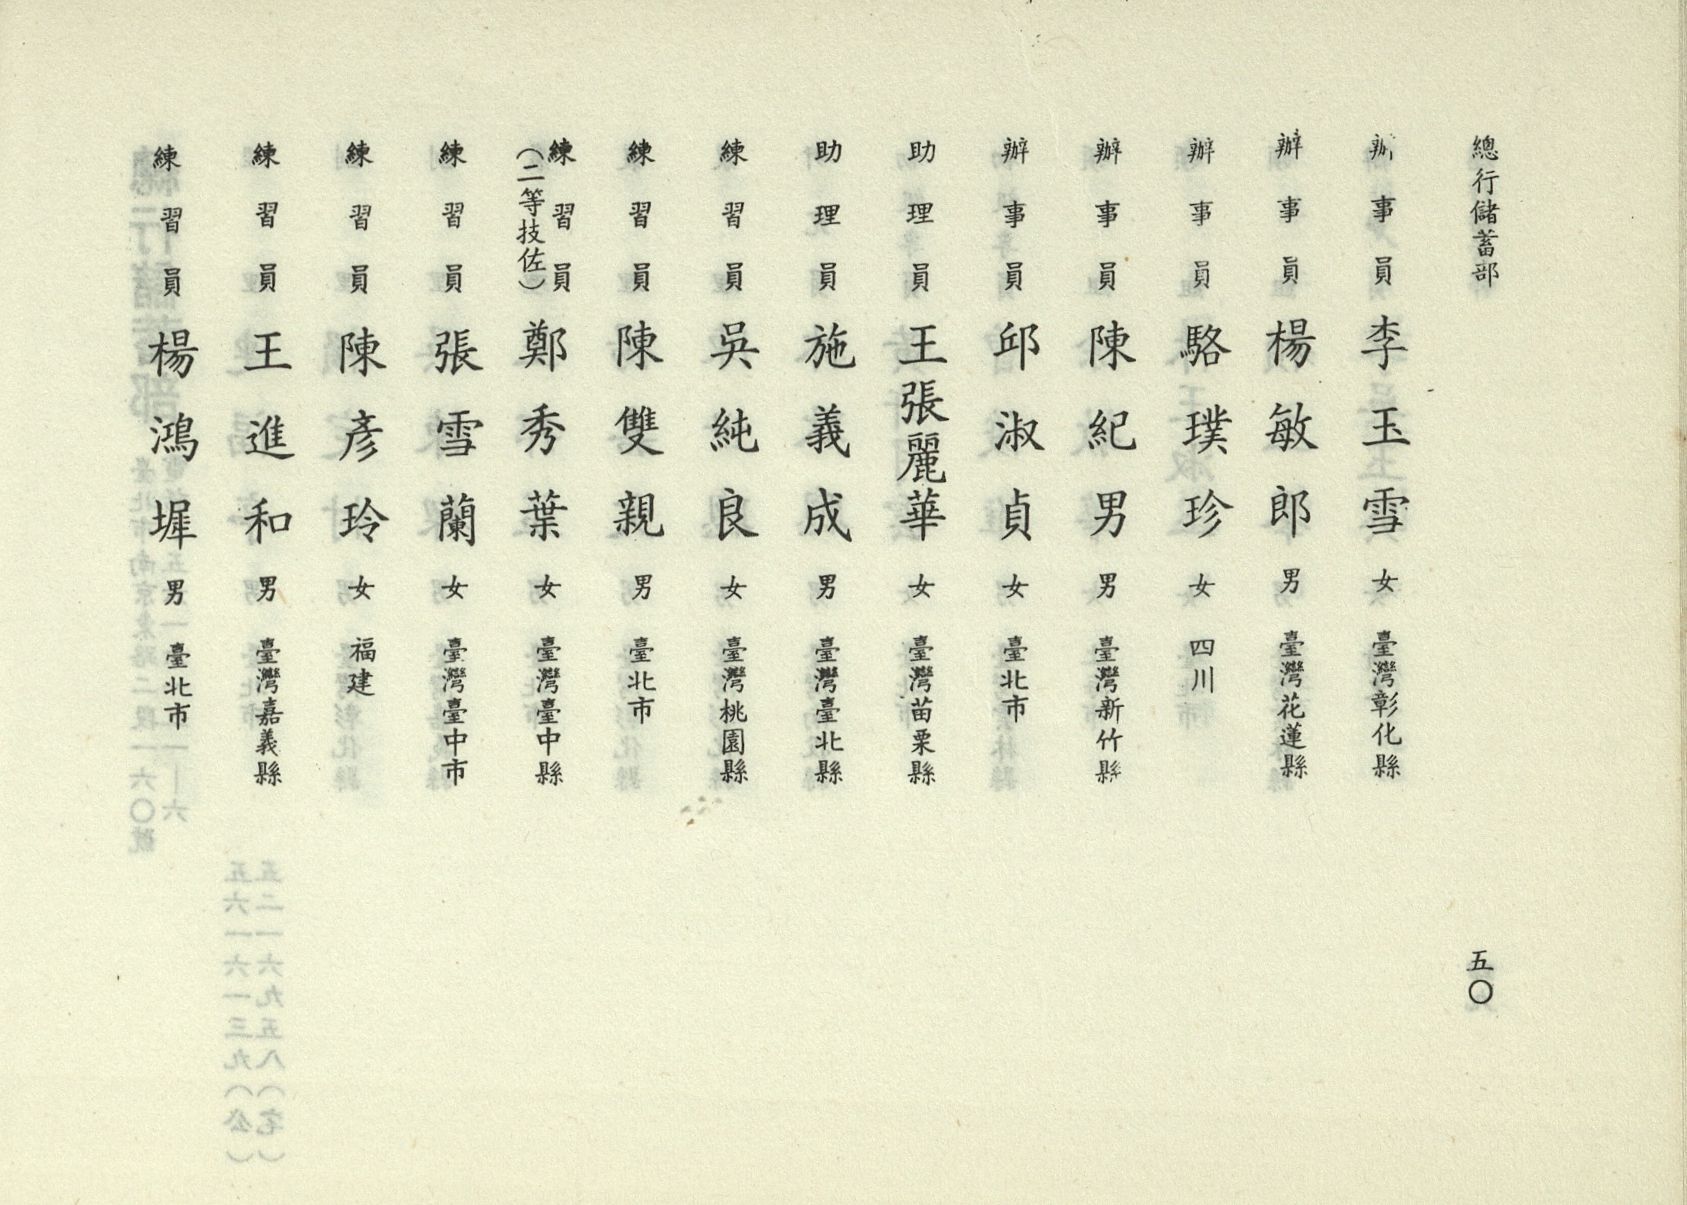 總行儲蓄部
五〇
辦事員 李玉雪 女 臺灣彰化縣
辦事員 楊敏郎 男 臺灣花蓮縣
辦事員 駱璞珍 女 四川
辦事員 陳紀男 男 臺灣新竹縣
辦事員 邱淑貞 女 臺北市
助理員 王張麗華 女 臺灣苗栗縣
助理員 施義成 男 臺灣臺北縣
練習員 吳純良 女 臺灣桃園縣
練習員 陳雙親 男 臺北市
練習員(二等技佐) 鄭秀葉 女 臺灣臺中縣
練習員 張雪蘭 女 臺灣臺中市
練習員 陳彥玲 女 福建
練習員 王進和 男 臺灣嘉義縣
練習員 楊鴻墀 男 臺北市